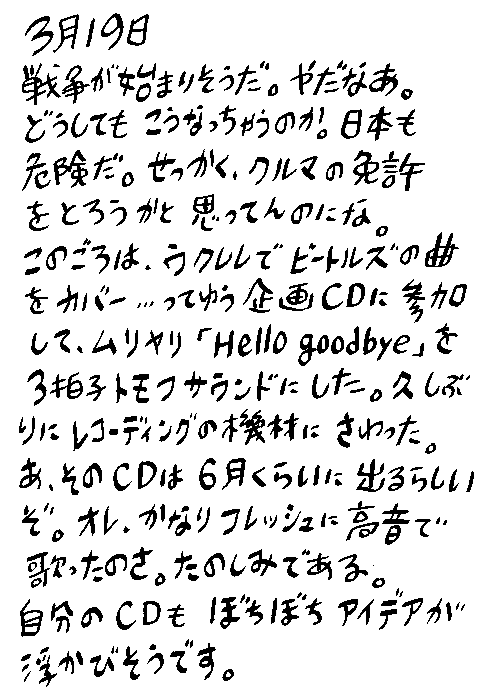 3月19日
戦争が始まりそうだ。やだなあ。
どうしても こうなっちゃうのか。日本も
危険だ。せっかく、クルマの免許
をとろうかと思ってんのにな。
このごろは、ウクレレでビートルズの曲
をカバー…ってゆう企画CDに参加
して、ムリヤリ「Hello goodbye」を
3拍子トモフサウンドにした。久しぶ
りにレコーディングの機材にさわった。
あ、そのCDは6月くらいに出るらしい
ぞ。オレ、かなりフレッシュに高音で
歌ったのさ。たのしみである。
自分のCDもぼちぼちアイデアが
浮かびそうです。